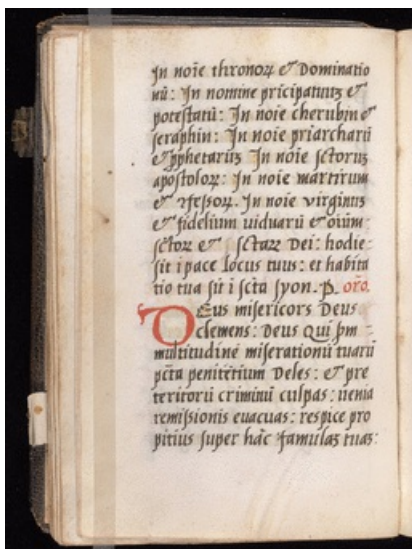 In noīe thronoꝝ & Dominatio
nū: In nomine prīcipatuuꝫ &
potestatū: In noīe cherubin &
seraphin: In noīe priarcharū
& pphetaruꝫ In noīe sctoruꝫ
apostoloꝝ: In noīe martirum
& ꝯfessoꝝ. In noīe virginuꝫ
& fidelium viduarū & oīum
sctoꝝ & sctaꝝ Dei: hodie
sit i pace locus tuus: et habita
tio tua sit i sctā syon. P. oro.
Deus misericors Deus
clemens: Deus qui ꝑm
multitudinē miserationū tuarū
pctā penitētium Deles: & pre
teritorū criminū culpas: uenia
remissionis euacuas: respice pro
pitius super hāc famulaꝫ tuaꝫ: